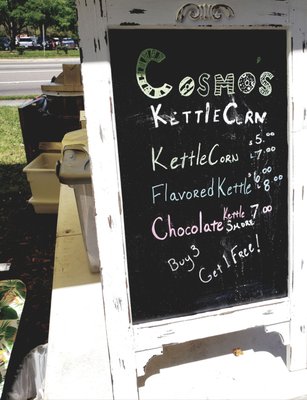 Cosmo's
KettleCorn
$5.00
KettleCorn $7.00
$6.00
Flavored Kettle $8.00
Chocolate Kettle Smore 7.00
Buy 3
Get 1 Free!